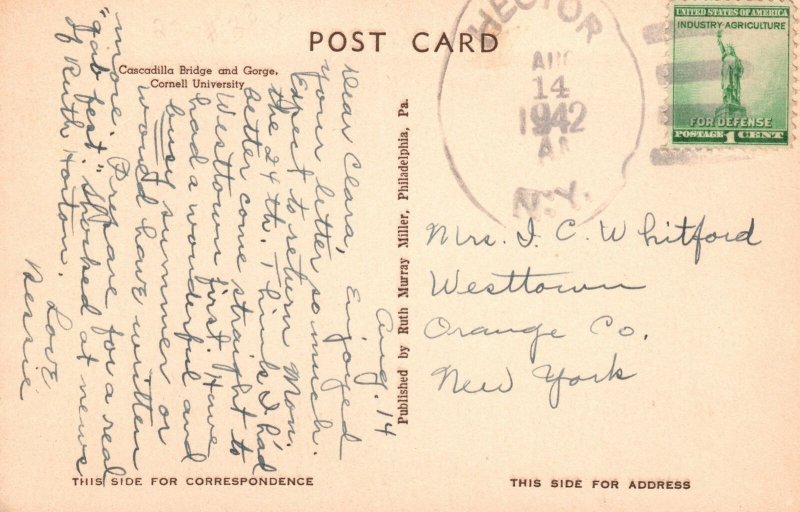 POST CARD
Cascadilla Bridge and Gorge,
Cornell University
Aug. 14
Dear Clara,
Enjoyed
your letter so much.
Expect to return Mon.
the 24 th. Think I had
better come straight to
Westtown first. Have
had a wonderful and
busy summer or
would have written
more. Prepare for a real
"gab fest." Shocked at news
of Ruth Horton.
Love
Bessie
THIS SIDE FOR CORRESPONDENCE
Published by Ruth Murray Miller, Philadelphia, Pa.
HECTOR
AUG
14
1942
N.Y.
UNITED STATES OF AMERICA
INDUSTRY-AGRICULTURE
FOR DEFENSE
POSTAGE 1 CENT
Mrs. I. C. Whitford
Westtown
Orange Co.
New York
THIS SIDE FOR ADDRESS